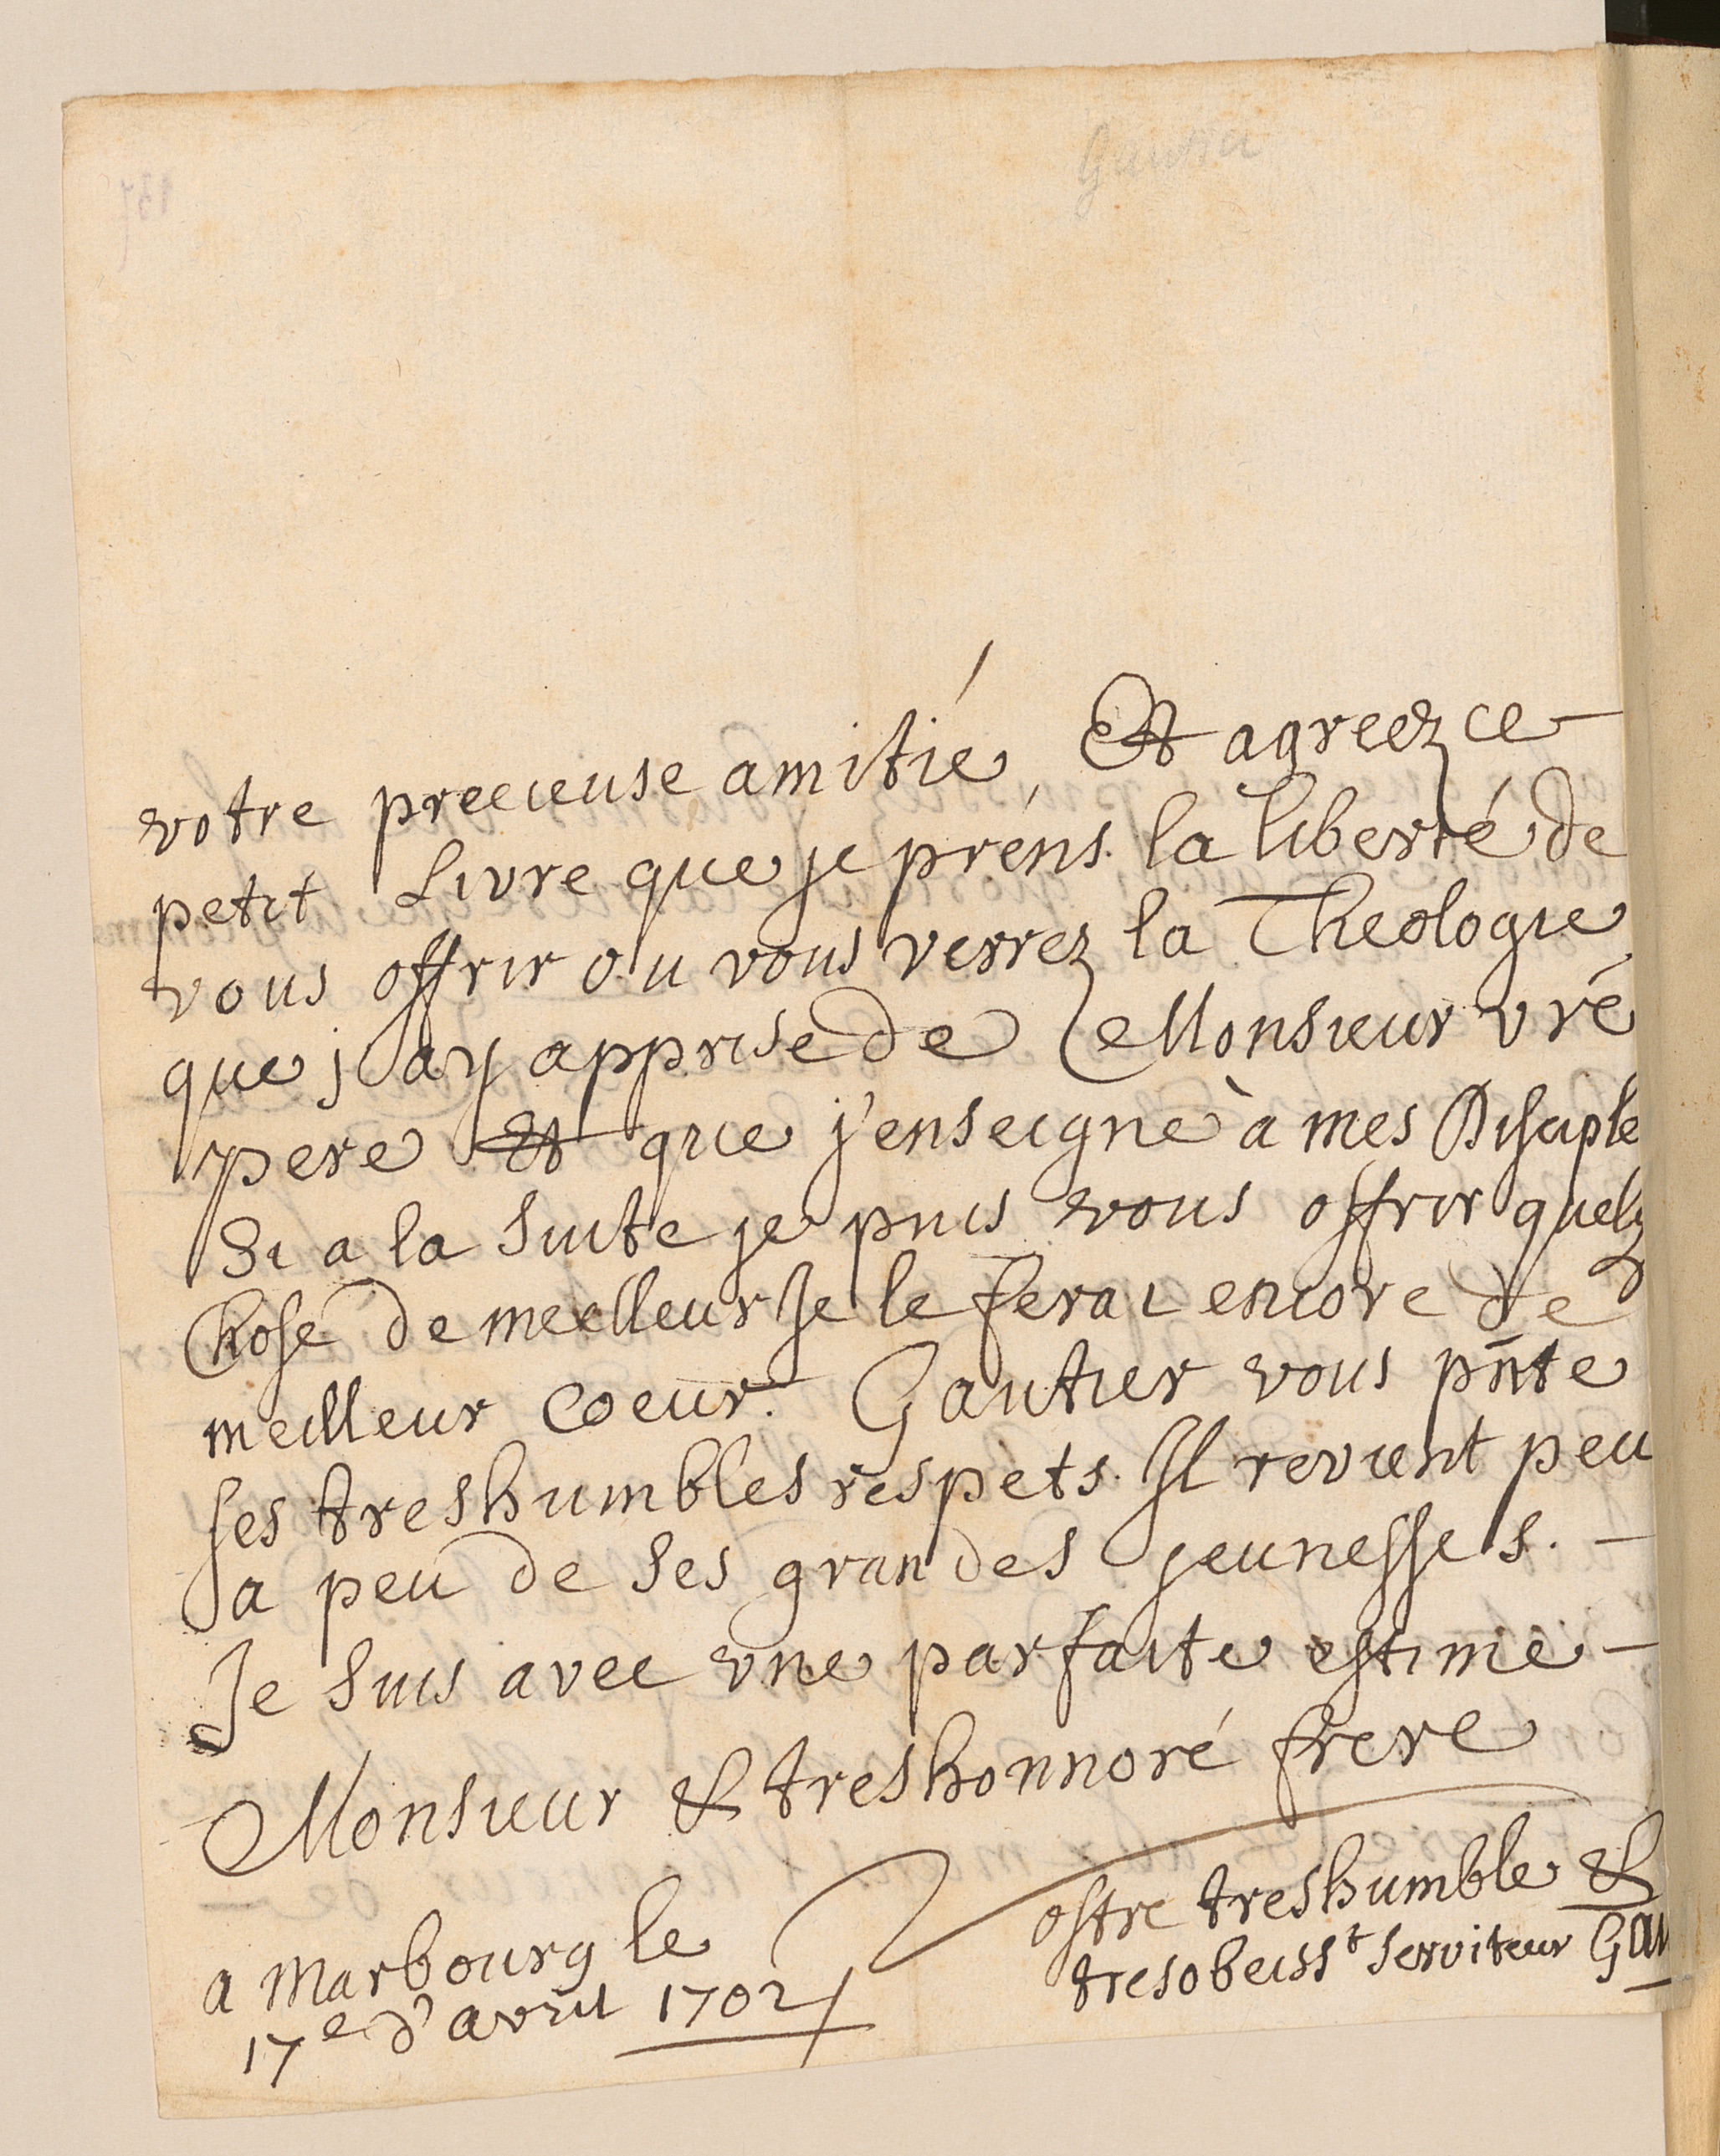 Gautier
votre precieuse amitié, Et agreez ce
petit Livre que je prens la liberté de
vous offrir ou vous verrez la Theologie
que j'ay apprise de Monsieur vre
pere Et que j'enseigne à mes Disciple
Si a la suite je puis vous offrir quelq
Chose de meilleur Je le ferai encore de
meilleur coeur. Gautier vous pnte
ses treshumbles respets. Il revient peu
a peu de ses grandes jeunesses. -
Je suis avec vne parfaite estime -
Monsieur & treshonnoré frere
Vostre treshumble &
tresobeisst serviteur Gau
a Marbourg le
17e d'avril 1702